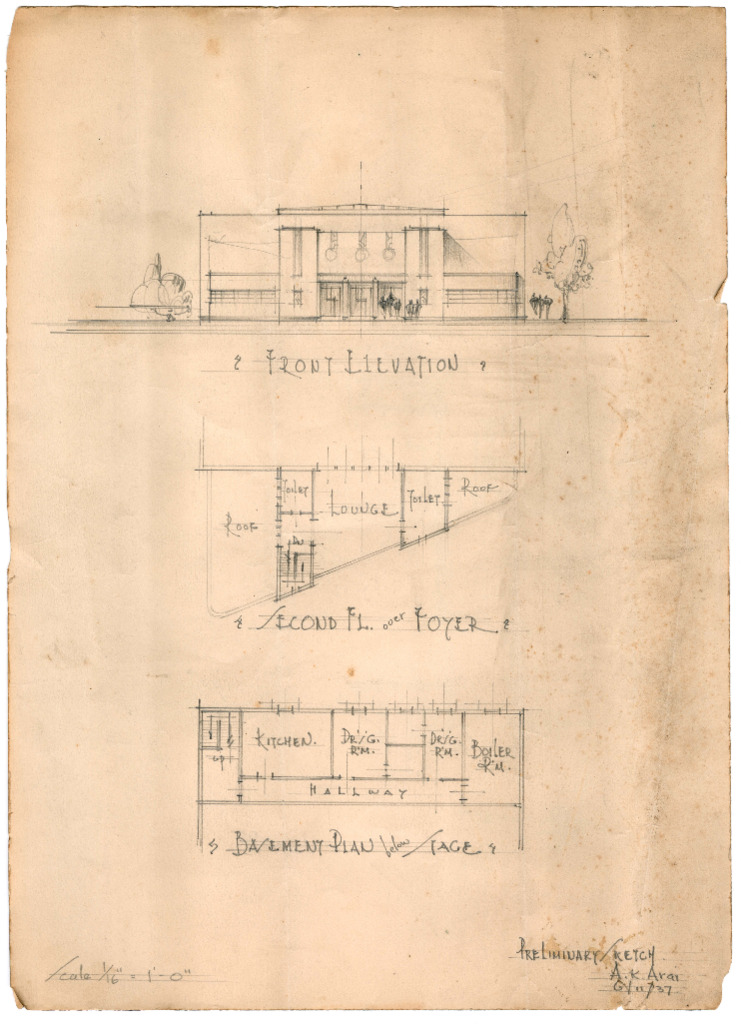 FRONT ELEVATION
TOILET
LOUNGE
TOILET
ROOF
ROOF
DN
SECOND FL. over FOYER
KITCHEN.
DR'S'G. R'M.
DR'S'G. R'M.
BOILER R'M.
UP
HALLWAY
BASEMENT PLAN below STAGE
PRELIMINARY SKETCH
A. K. Arai
6/11/37
Scale 1/16" = 1'-0"